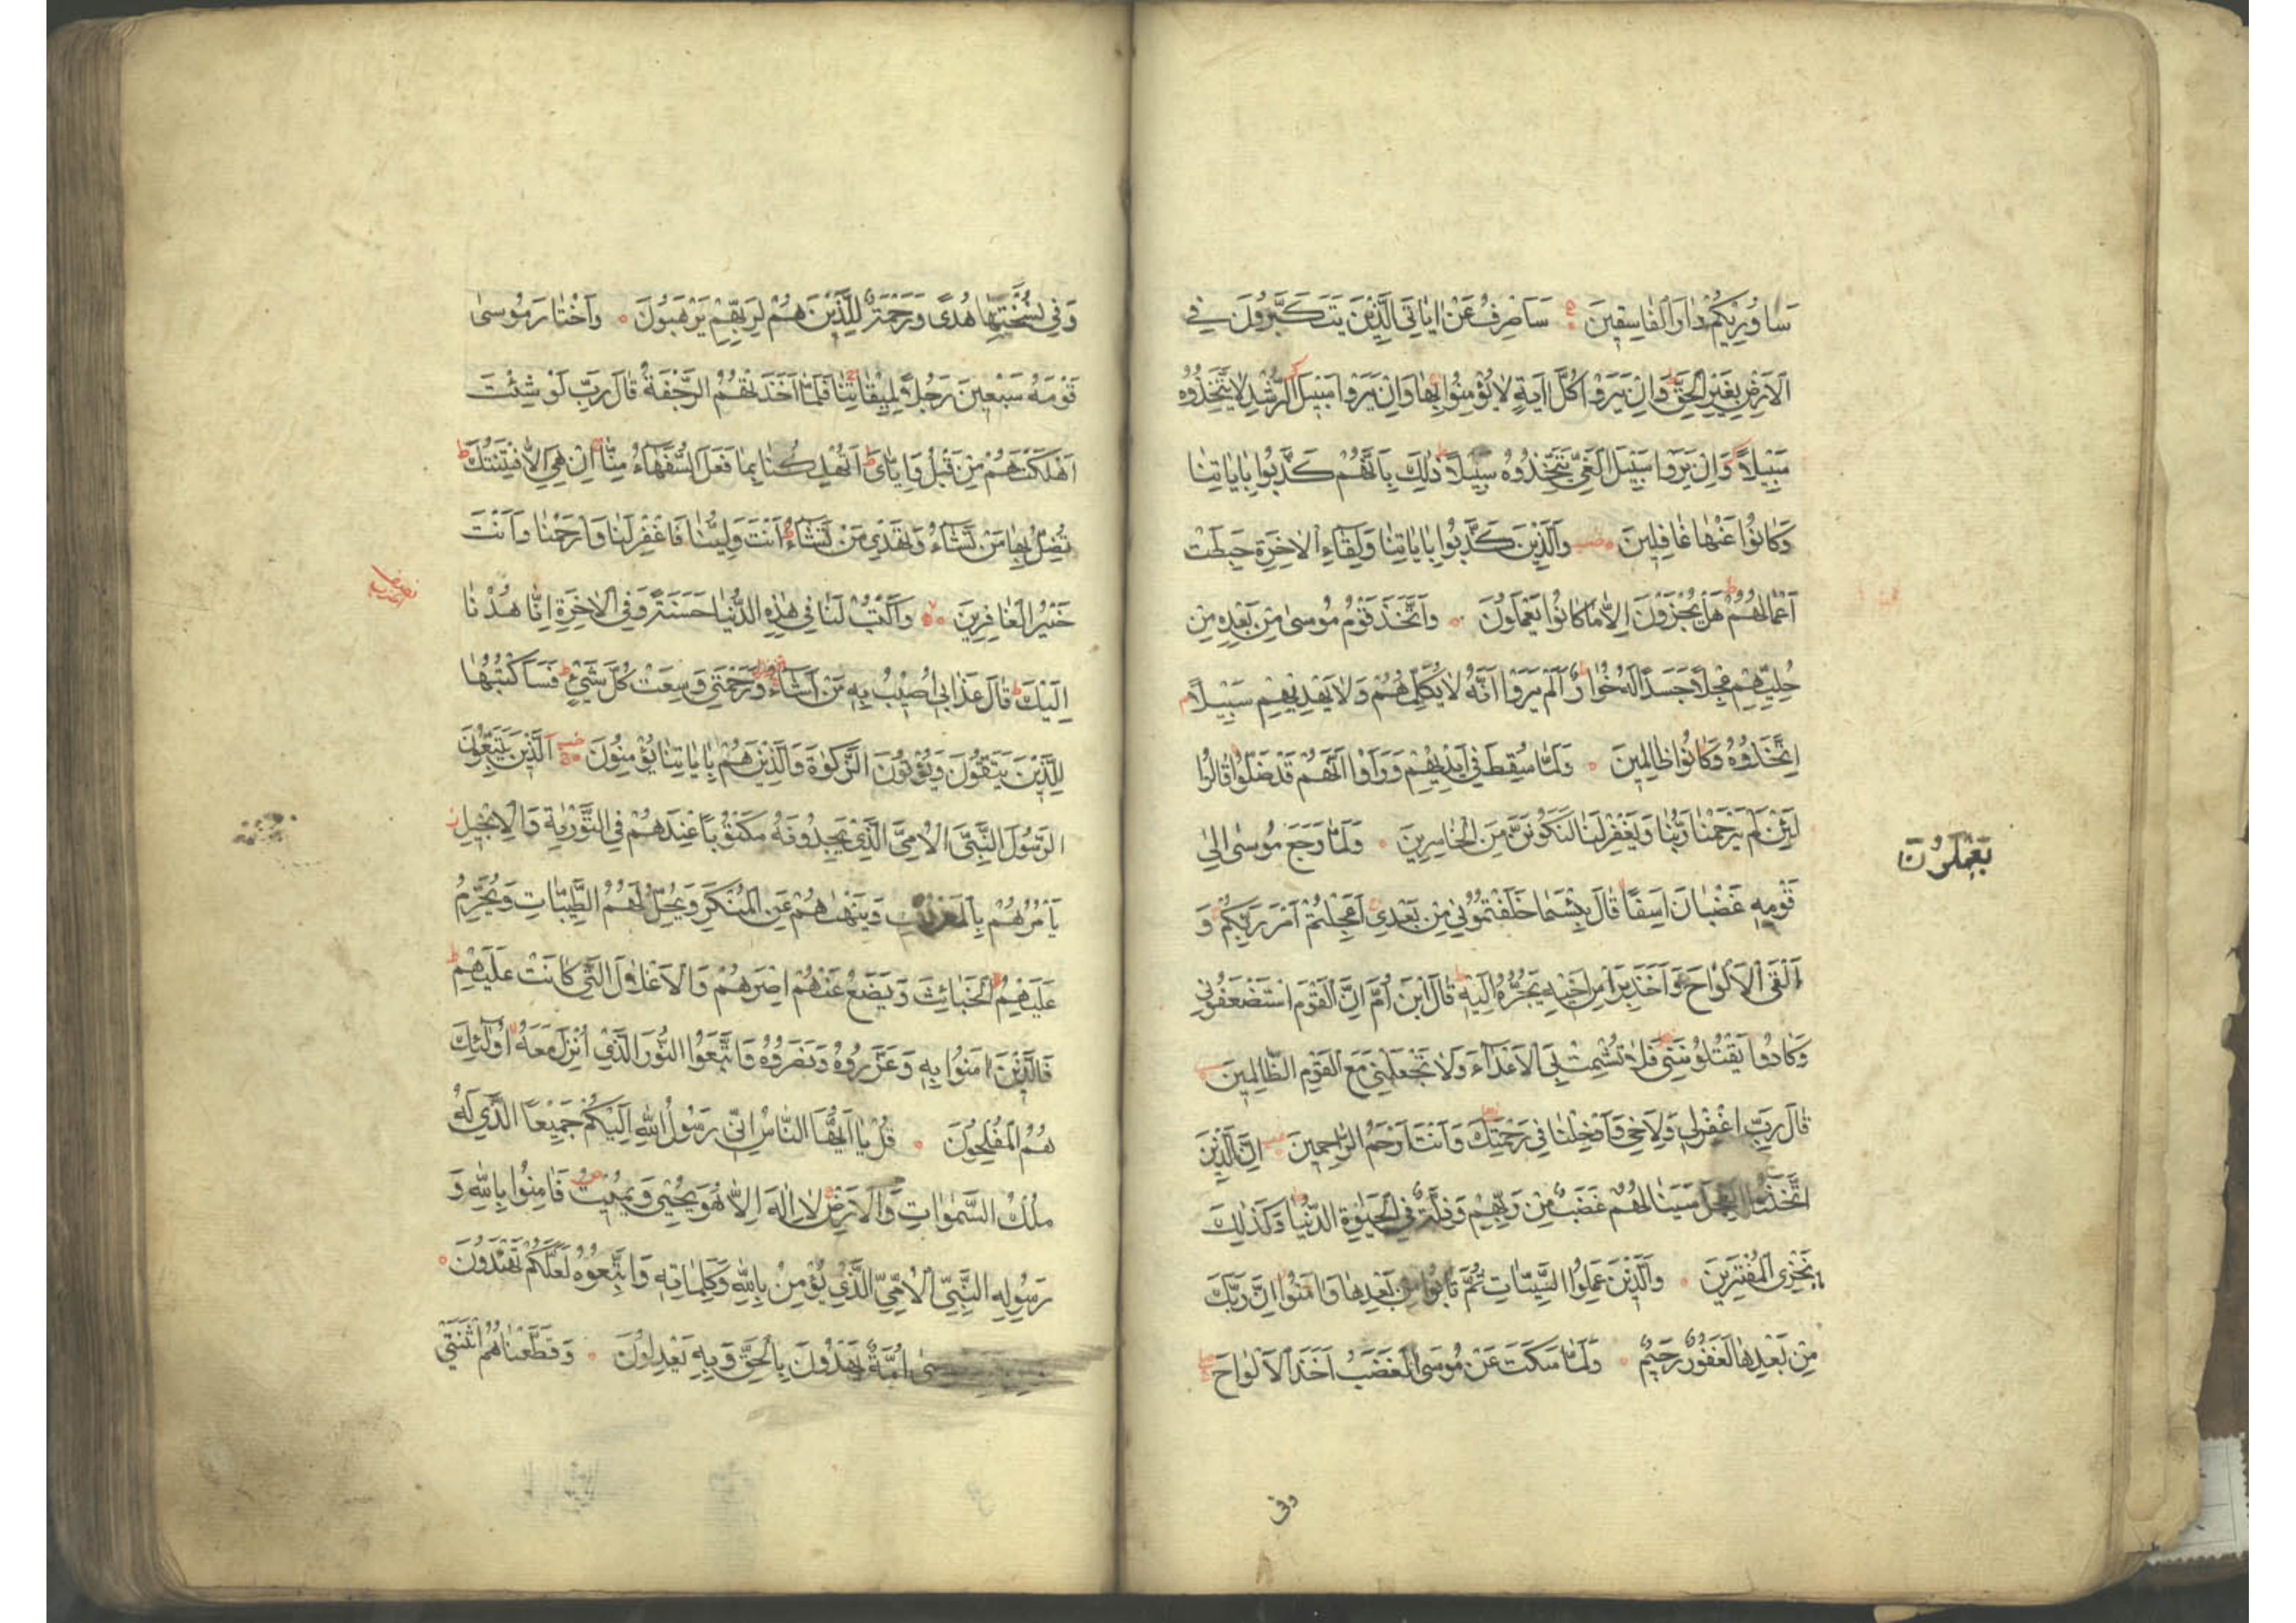 سَاُورِيكُمْ دَارَ الْفَاسِقِينَ سَاَصْرِفُ عَنْ اٰيَاتِيَ الَّذِينَ يَتَكَبَّرُونَ فِي
الْاَرْضِ بِغَيْرِ الْحَقِّ وَاِنْ يَرَوْا كُلَّ اٰيَةٍ لَا يُؤْمِنُوا بِهَا وَاِنْ يَرَوْا سَبِيلَ الرُّشْدِ لَا يَتَّخِذُوهُ
سَبِيلًا وَاِنْ يَرَوْا سَبِيلَ الْغَيِّ يَتَّخِذُوهُ سَبِيلًا ذٰلِكَ بِاَنَّهُمْ كَذَّبُوا بِاٰيَاتِنَا
وَكَانُوا عَنْهَا غَافِلِينَ وَالَّذِينَ كَذَّبُوا بِاٰيَاتِنَا وَلِقَاءِ الْاٰخِرَةِ حَبِطَتْ
اَعْمَالُهُمْ هَلْ يُجْزَوْنَ اِلَّا مَا كَانُوا يَعْمَلُونَ وَاتَّخَذَ قَوْمُ مُوسٰى مِنْ بَعْدِهِ مِنْ
حُلِيِّهِمْ عِجْلًا جَسَدًا لَهُ خُوَارٌ اَلَمْ يَرَوْا اَنَّهُ لَا يُكَلِّمُهُمْ وَلَا يَهْدِيهِمْ سَبِيلًا
اِتَّخَذُوهُ وَكَانُوا ظَالِمِينَ وَلَمَّا سُقِطَ فِي اَيْدِيهِمْ وَرَاَوْا اَنَّهُمْ قَدْ ضَلُّوا قَالُوا
لَئِنْ لَمْ يَرْحَمْنَا رَبُّنَا وَيَغْفِرْ لَنَا لَنَكُونَنَّ مِنَ الْخَاسِرِينَ وَلَمَّا رَجَعَ مُوسٰى اِلٰى
يَعْمَلُونَ
قَوْمِهِ غَضْبَانَ اَسِفًا قَالَ بِئْسَمَا خَلَفْتُمُونِي مِنْ بَعْدِي اَعَجِلْتُمْ اَمْرَ رَبِّكُمْ وَ
اَلْقَى الْاَلْوَاحَ وَاَخَذَ بِرَاْسِ اَخِيهِ يَجُرُّهُ اِلَيْهِ قَالَ ابْنَ اُمَّ اِنَّ الْقَوْمَ اسْتَضْعَفُونِي
وَكَادُوا يَقْتُلُونَنِي فَلَا تُشْمِتْ بِيَ الْاَعْدَاءَ وَلَا تَجْعَلْنِي مَعَ الْقَوْمِ الظَّالِمِينَ
قَالَ رَبِّ اغْفِرْ لِي وَلِاَخِي وَاَدْخِلْنَا فِي رَحْمَتِكَ وَاَنْتَ اَرْحَمُ الرَّاحِمِينَ اِنَّ الَّذِينَ
اتَّخَذُوا الْعِجْلَ سَيَنَالُهُمْ غَضَبٌ مِنْ رَبِّهِمْ وَذِلَّةٌ فِي الْحَيٰوةِ الدُّنْيَا وَكَذٰلِكَ
نَجْزِي الْمُفْتَرِينَ وَالَّذِينَ عَمِلُوا السَّيِّئَاتِ ثُمَّ تَابُوا مِنْ بَعْدِهَا وَاٰمَنُوا اِنَّ رَبَّكَ
مِنْ بَعْدِهَا لَغَفُورٌ رَحِيمٌ وَلَمَّا سَكَتَ عَنْ مُوسَى الْغَضَبُ اَخَذَ الْاَلْوَاحَ
وفى
وَفِي نُسْخَتِهَا هُدًى وَرَحْمَةٌ لِلَّذِينَ هُمْ لِرَبِّهِمْ يَرْهَبُونَ وَاخْتَارَ مُوسٰى
قَوْمَهُ سَبْعِينَ رَجُلًا لِمِيقَاتِنَا فَلَمَّا اَخَذَتْهُمُ الرَّجْفَةُ قَالَ رَبِّ لَوْ شِئْتَ
اَهْلَكْتَهُمْ مِنْ قَبْلُ وَاِيَّايَ اَتُهْلِكُنَا بِمَا فَعَلَ السُّفَهَاءُ مِنَّا اِنْ هِيَ اِلَّا فِتْنَتُكَ
تُضِلُّ بِهَا مَنْ تَشَاءُ وَتَهْدِي مَنْ تَشَاءُ اَنْتَ وَلِيُّنَا فَاغْفِرْ لَنَا وَارْحَمْنَا وَاَنْتَ
خَيْرُ الْغَافِرِينَ وَاكْتُبْ لَنَا فِي هٰذِهِ الدُّنْيَا حَسَنَةً وَفِي الْاٰخِرَةِ اِنَّا هُدْنَا
اِلَيْكَ قَالَ عَذَابِي اُصِيبُ بِهِ مَنْ اَشَاءُ وَرَحْمَتِي وَسِعَتْ كُلَّ شَيْءٍ فَسَاَكْتُبُهَا
لِلَّذِينَ يَتَّقُونَ وَيُؤْتُونَ الزَّكٰوةَ وَالَّذِينَ هُمْ بِاٰيَاتِنَا يُؤْمِنُونَ اَلَّذِينَ يَتَّبِعُونَ
الرَّسُولَ النَّبِيَّ الْاُمِّيَّ الَّذِي يَجِدُونَهُ مَكْتُوبًا عِنْدَهُمْ فِي التَّوْرٰيةِ وَالْاِنْجِيلِ
يَاْمُرُهُمْ بِالْمَعْرُوفِ وَيَنْهٰيهُمْ عَنِ الْمُنْكَرِ وَيُحِلُّ لَهُمُ الطَّيِّبَاتِ وَيُحَرِّمُ
عَلَيْهِمُ الْخَبَائِثَ وَيَضَعُ عَنْهُمْ اِصْرَهُمْ وَالْاَغْلَالَ الَّتِي كَانَتْ عَلَيْهِمْ
فَالَّذِينَ اٰمَنُوا بِهِ وَعَزَّرُوهُ وَنَصَرُوهُ وَاتَّبَعُوا النُّورَ الَّذِي اُنْزِلَ مَعَهُ اُولٰئِكَ
هُمُ الْمُفْلِحُونَ قُلْ يَا اَيُّهَا النَّاسُ اِنِّي رَسُولُ اللّٰهِ اِلَيْكُمْ جَمِيعًا الَّذِي لَهُ
مُلْكُ السَّمٰوَاتِ وَالْاَرْضِ لَا اِلٰهَ اِلَّا هُوَ يُحْيِي وَيُمِيتُ فَاٰمِنُوا بِاللّٰهِ وَ
رَسُولِهِ النَّبِيِّ الْاُمِّيِّ الَّذِي يُؤْمِنُ بِاللّٰهِ وَكَلِمَاتِهِ وَاتَّبِعُوهُ لَعَلَّكُمْ تَهْتَدُونَ
اُمَّةٌ يَهْدُونَ بِالْحَقِّ وَبِهِ يَعْدِلُونَ وَقَطَّعْنَاهُمُ اثْنَتَيْ